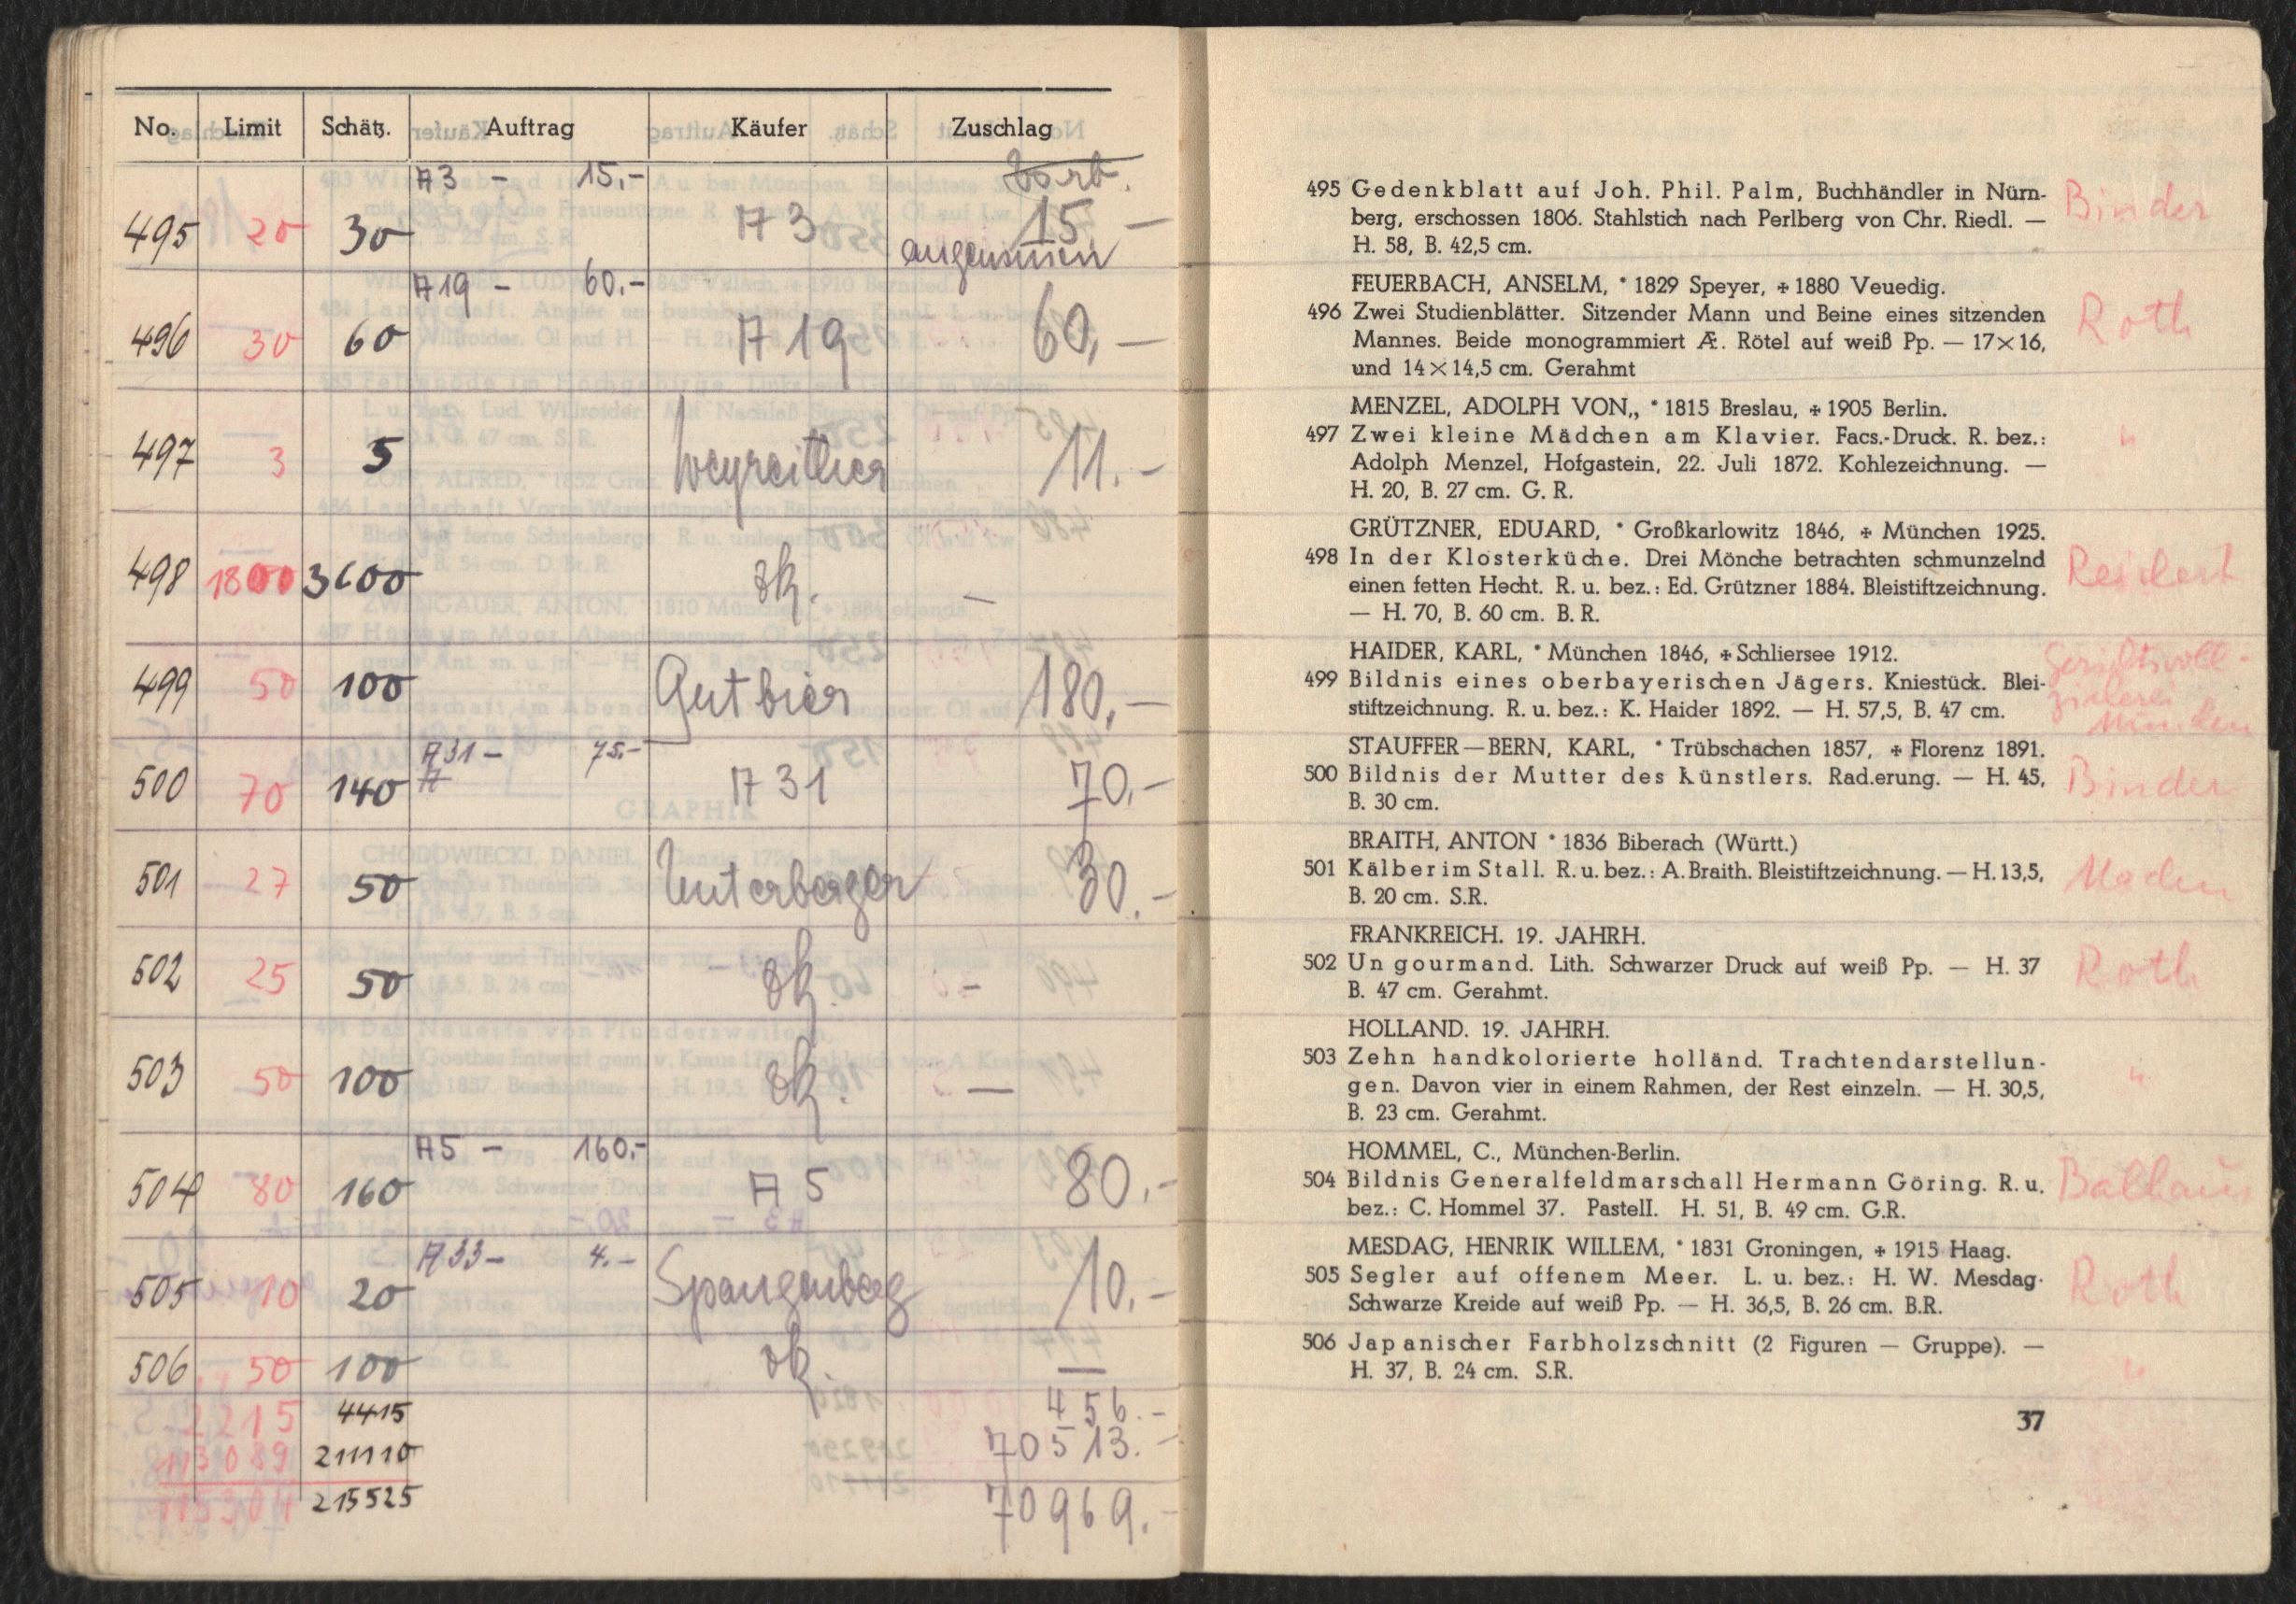 No. Limit Schätz. Auftrag Käufer Zuschlag
A3 – 15.-
495 20 30 A 3 15,–
A19 – 60.-
496 30 60 A 19 60,–
497 3 5 11.–
498 1800 3600 –
499 50 100 Gutbier 180,–
A31 – 75.-
500 70 140 A 31 70,–
501 27 50 Unterberger 30.–
502 25 50 –
503 50 100 –
A5 – 160.-
504 80 160 A 5 80.–
A33 – 4.-
505 10 20 Spangenberg 10.–
506 50 100 —
2215 4415 456.–
113089 211110 70513.–
115304 215525 70969.–
495 Gedenkblatt auf Joh. Phil. Palm, Buchhändler in Nürn- Binder
berg, erschossen 1806. Stahlstich nach Perlberg von Chr. Riedl. —
H. 58, B. 42,5 cm.
FEUERBACH, ANSELM, * 1829 Speyer, + 1880 Veuedig.
496 Zwei Studienblätter. Sitzender Mann und Beine eines sitzenden Roth
Mannes. Beide monogrammiert Æ. Rötel auf weiß Pp. — 17×16,
und 14×14,5 cm. Gerahmt
MENZEL, ADOLPH VON,, * 1815 Breslau, + 1905 Berlin.
497 Zwei kleine Mädchen am Klavier. Facs.-Druck. R. bez.: "
Adolph Menzel, Hofgastein, 22. Juli 1872. Kohlezeichnung. —
H. 20, B. 27 cm. G. R.
GRÜTZNER, EDUARD, * Großkarlowitz 1846, + München 1925.
498 In der Klosterküche. Drei Mönche betrachten schmunzelnd
einen fetten Hecht. R. u. bez.: Ed. Grützner 1884. Bleistiftzeichnung.
— H. 70, B. 60 cm. B. R.
HAIDER, KARL, * München 1846, + Schliersee 1912.
499 Bildnis eines oberbayerischen Jägers. Kniestück. Blei-
stiftzeichnung. R. u. bez.: K. Haider 1892. — H. 57,5, B. 47 cm. München
STAUFFER—BERN, KARL, * Trübschachen 1857, + Florenz 1891.
500 Bildnis der Mutter des Künstlers. Rad.erung. — H. 45, Binder
B. 30 cm.
BRAITH, ANTON * 1836 Biberach (Württ.)
501 Kälber im Stall. R. u. bez.: A. Braith. Bleistiftzeichnung. — H. 13,5,
B. 20 cm. S.R.
FRANKREICH. 19. JAHRH.
502 Un gourmand. Lith. Schwarzer Druck auf weiß Pp. — H. 37 Roth
B. 47 cm. Gerahmt.
HOLLAND. 19. JAHRH.
503 Zehn handkolorierte holländ. Trachtendarstellun- "
gen. Davon vier in einem Rahmen, der Rest einzeln. — H. 30,5,
B. 23 cm. Gerahmt.
HOMMEL, C., München-Berlin.
504 Bildnis Generalfeldmarschall Hermann Göring. R. u.
bez.: C. Hommel 37. Pastell. H. 51, B. 49 cm. G.R.
MESDAG, HENRIK WILLEM, * 1831 Groningen, + 1915 Haag.
505 Segler auf offenem Meer. L. u. bez.: H. W. Mesdag. Roth
Schwarze Kreide auf weiß Pp. — H. 36,5, B. 26 cm. B.R.
506 Japanischer Farbholzschnitt (2 Figuren — Gruppe). —
H. 37, B. 24 cm. S.R. "
37